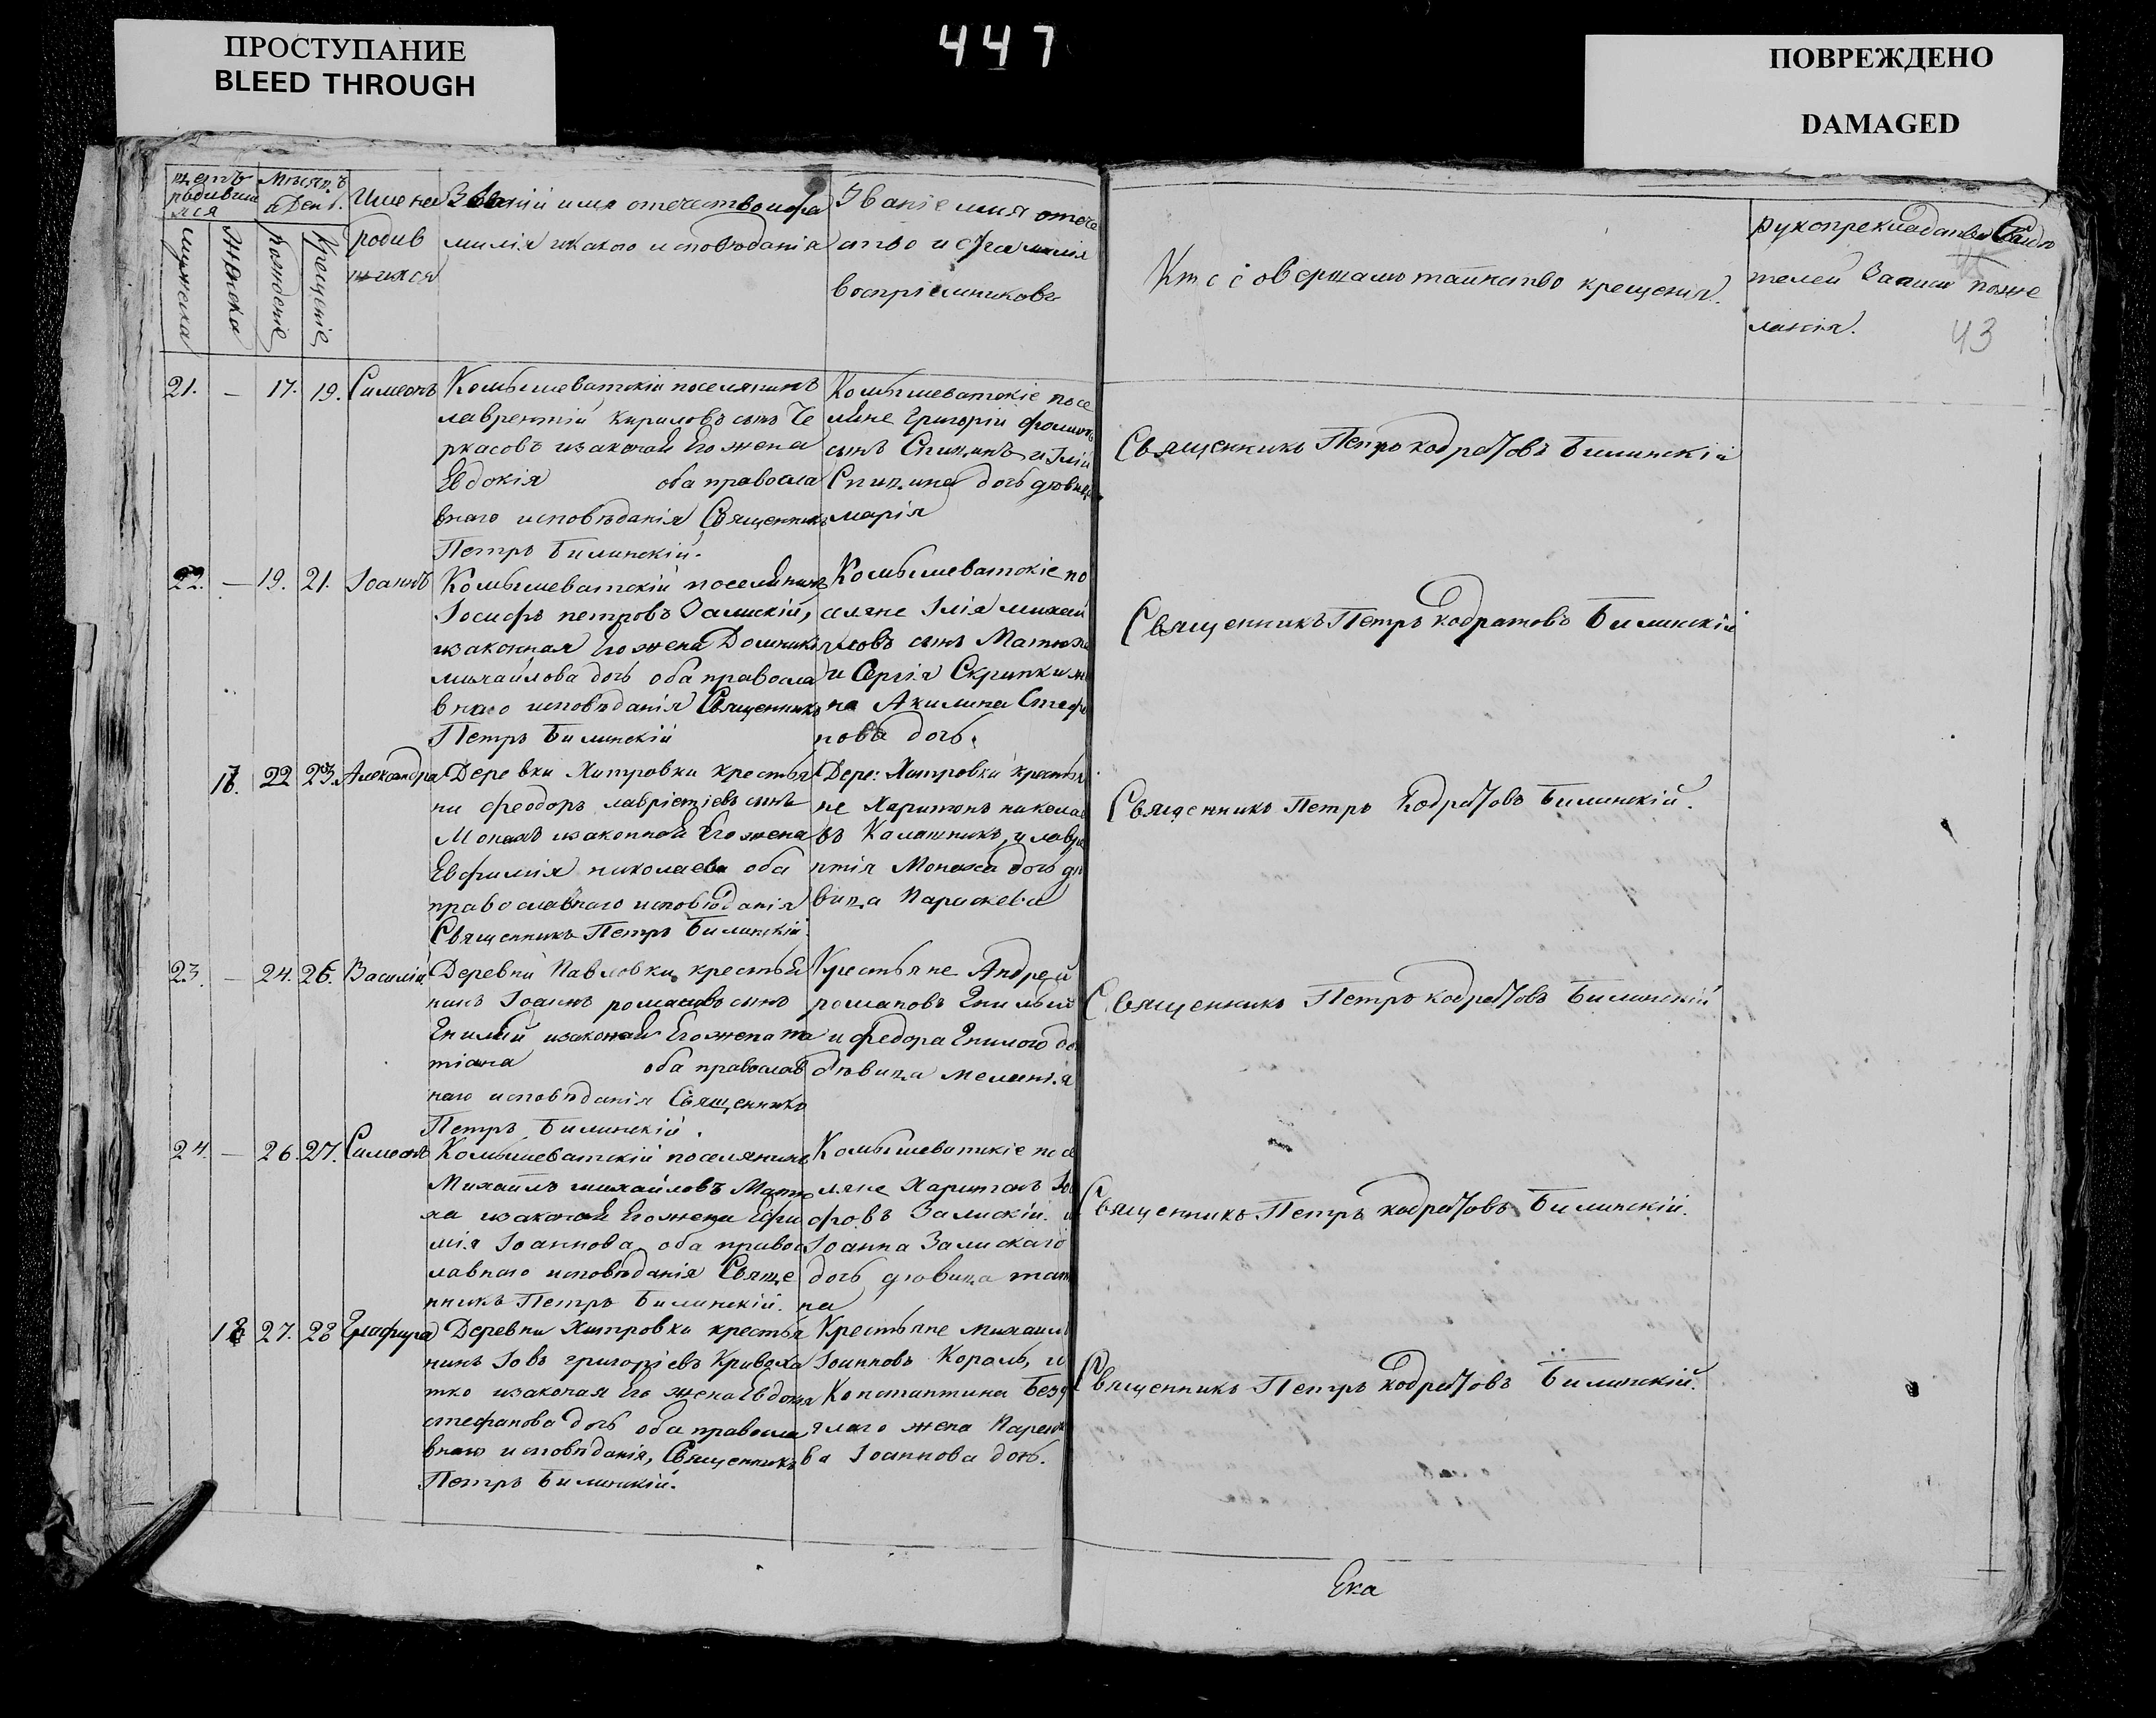 ПРОСТУПАНИЕ
BLEED THROUGH
447
ПОВРЕЖДЕНО
DAMAGED
43
Имена
родив
шихся
Званіе имя отече
ство и фамилія
воспріемниковъ
рожденіе
Крещеніе
Кто совершалъ таинство крещенія.
21. — 17. 19. Симеонъ
Комышеватскій поселянинъ
лаврентій Кириловъ сынъ Че
ркасовъ изаконая Его жена
Евдокія оба правосла
внаго исповѣданія Священникъ
Петръ Билинскій.
Комышеватскіе посе
ляне Григорій
дочь дѣвица
марія
Священникъ Петръ кодратовъ Билинскій
22. — 19. 21. Іоаннъ
Комышеватскій поселянинъ
Іосифъ петровъ Залискій,
изаконная Его жена Домникія
михайлова дочь оба правосла
внаго исповѣданія Священникъ
Петръ Билинскій
Комышеватскіе по
селяне Илія михай
ловъ сынъ
и Сергія Скрипки же
на Акилина Стефа
нова дочь.
Священникъ Петръ кодратовъ Билинскій
22 23. Александра
Деревни Хитровки крестья
ни феодоръ сынъ
Монахъ изаконной Его жена
Евфимія николаева оба
православнаго исповѣданія
Священникъ Петръ Билинскій.
Дере: Хитровки крестья
не Харитонъ никола
въ Калашникъ, и лавре
нтія Монаха дочь дѣ
вица Параскева
Священникъ Петръ Кодратовъ Билинскій.
23. — 24. 26. Василій
Деревни Павловки крестья
нинъ Іоаннъ романовъ сынъ
Гнилый изаконая Его жена та
тіана оба православ
наго исповѣданія Священникъ
Петръ Билинскій.
Крестьяне Андрей
романовъ Гнилый
и федора Гнилого до
дѣвица меланія
Священникъ Петръ кодратовъ Билинскій
24. — 26. 27. Симеонъ
Комышеватскій поселянинъ
Михаилъ михайловъ Матю
ха изаконая Его жена Ефи
мія Іоаннова, оба правос
лавнаго исповѣданія Свяще
нникъ Петръ Билинскій.
Комышеватскіе посе
ляне Харитонъ
фовъ Залискій. и
Іоанна Залискаго
дочь дѣвица
на
Священникъ Петръ кодратовъ Билинскій.
18 27. 28 Глафира
Деревни Хитровки крестья
нинъ Іовъ григоріевъ
изаконая Его жена Евдокія
стефанова дочь оба правосла
внаго исповѣданія, Священникъ
Петръ Билинскій.
Крестьяне михаилъ
Іоанновъ Король, и
Константина
жена Параске
ва Іоаннова дочь.
Священникъ Петръ кодратовъ Билинскій.
Ека